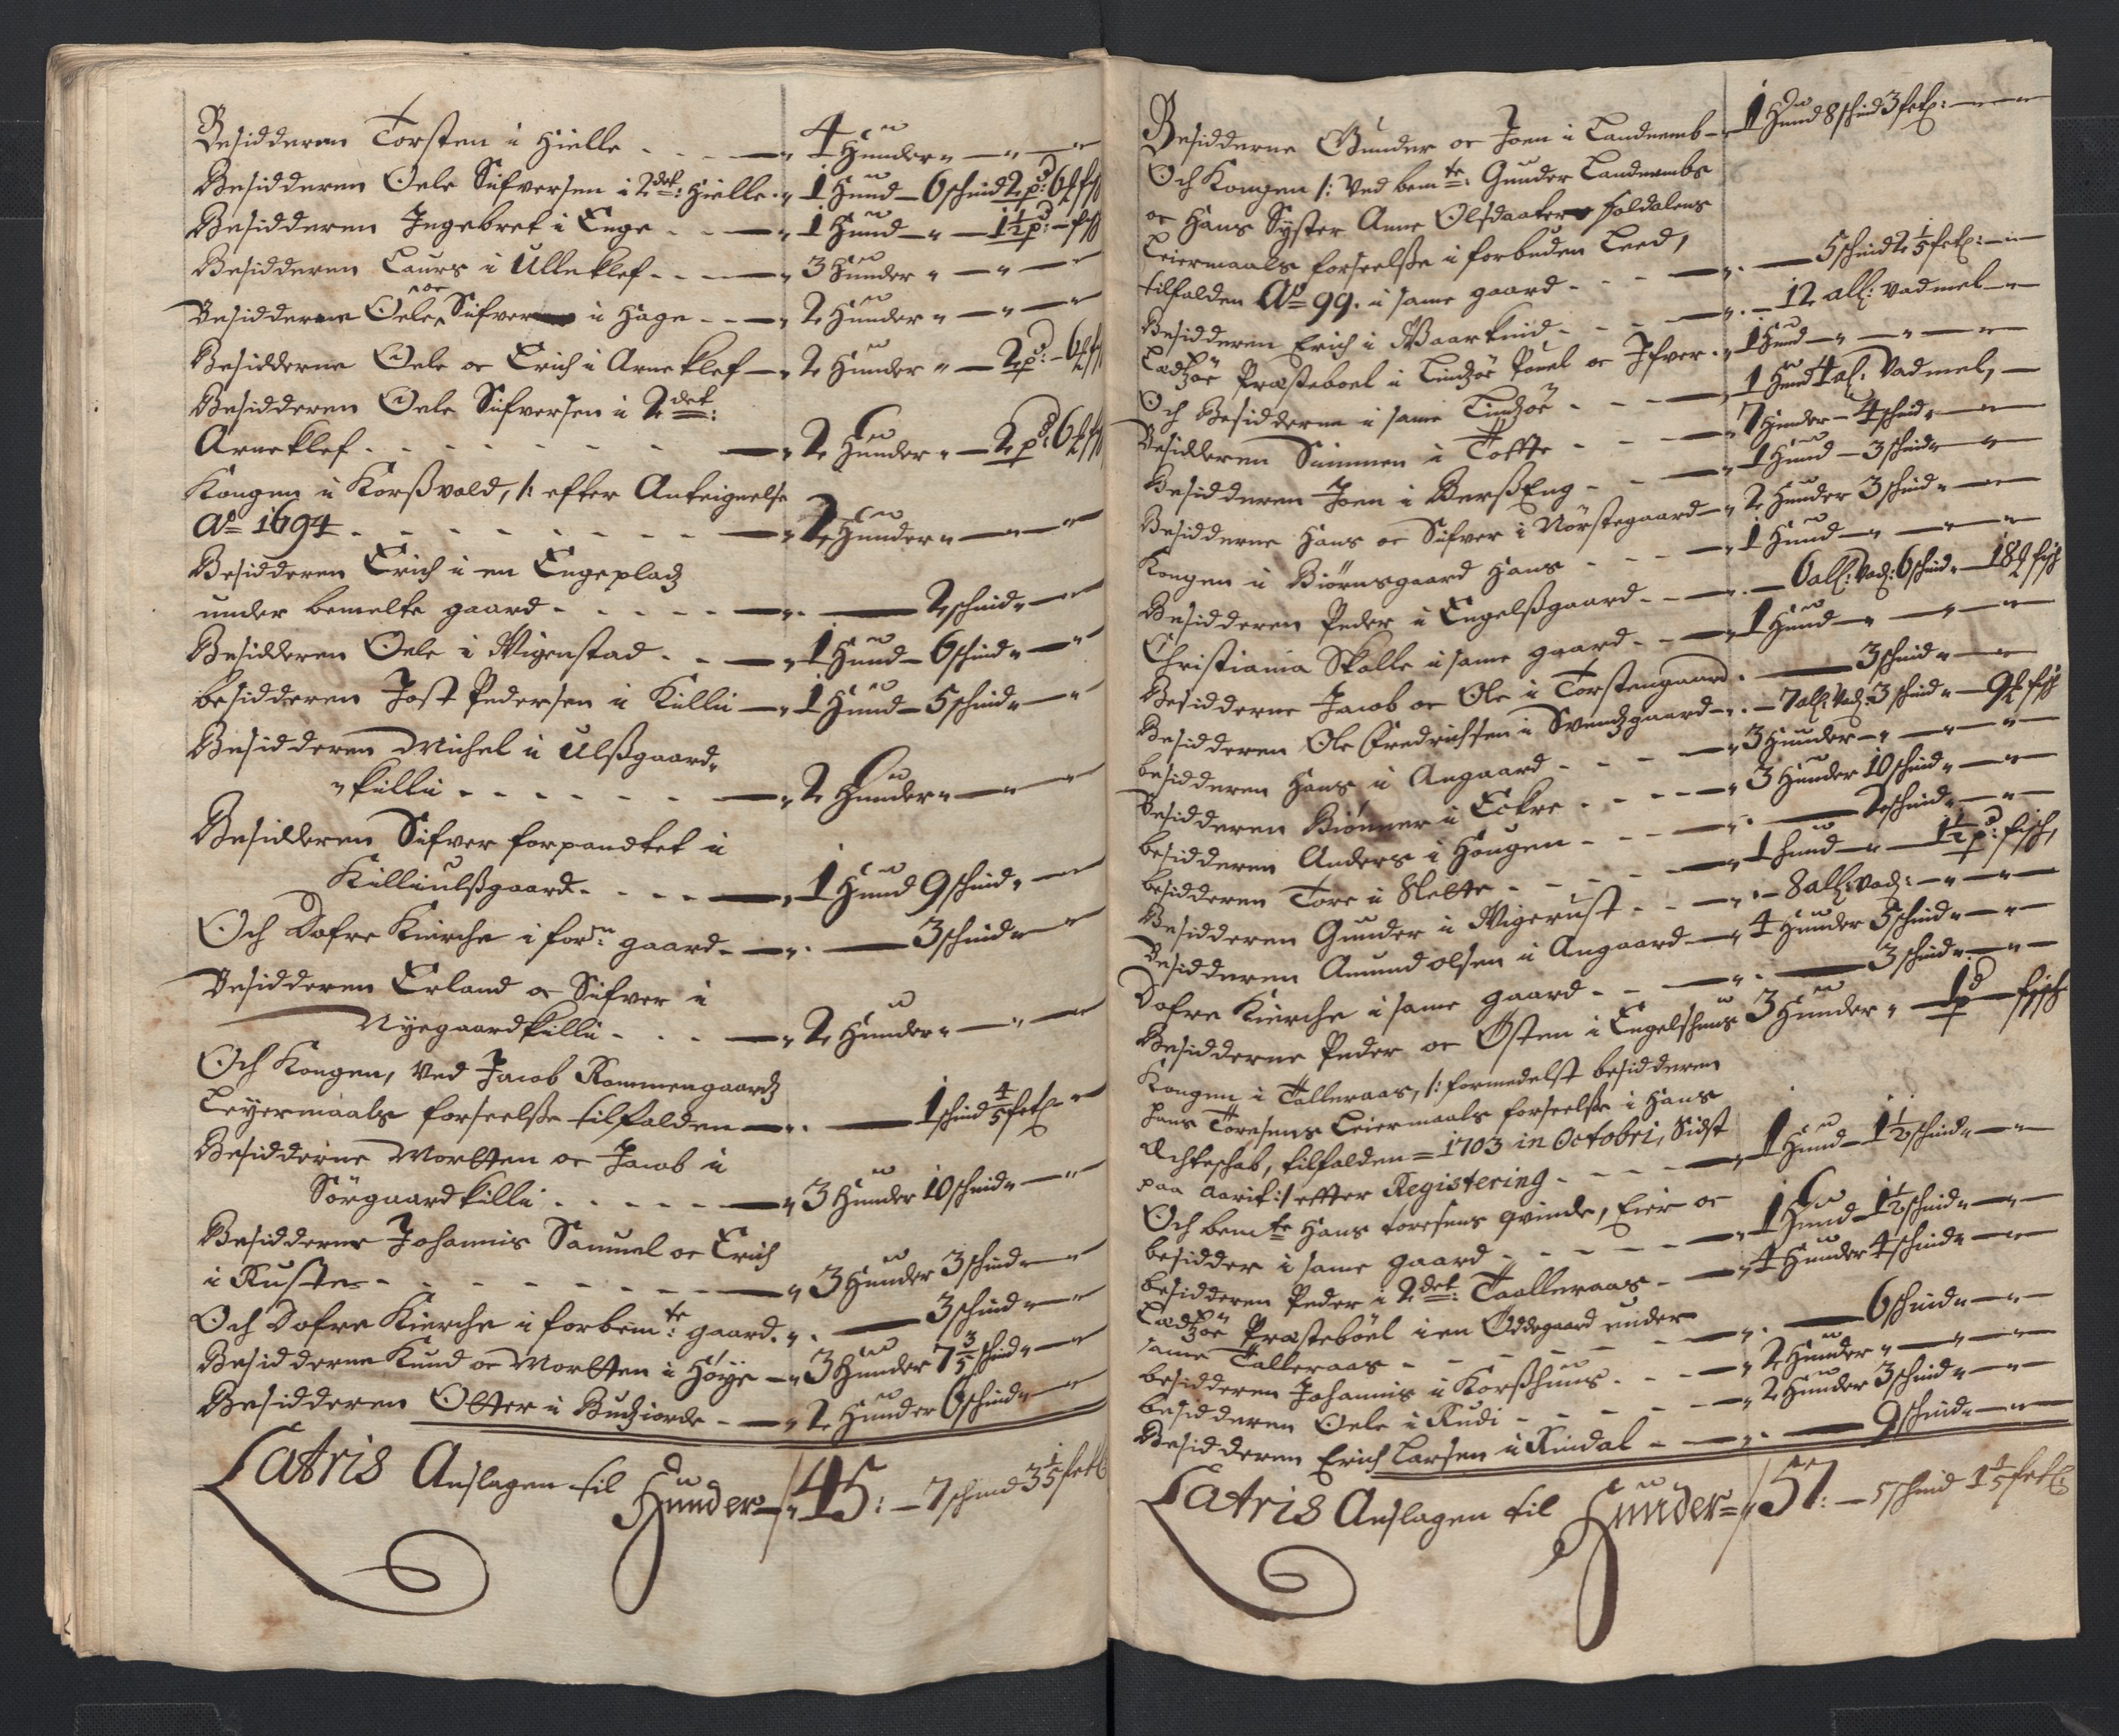 Besidderen Torsten i Hielle - - - 4 Hunder
Besidderen Oele Sifversen i 2det: Hielle - 1 Hund - 6 schind 2 pd: 6
Besidderen Ingebret i Enge - - - 1 Hund - 1½ pd:
Besidderen Laurs i Ulleklef - - - 3 Hunder
Besidderne Oele oc Sifver i Hage - - - 2 Hunder
Besidderne Oele oc Erich i Arneklef - 2 Hunder - 2 pd: - 6
Besidderen Oele Sifversen i 2det:
Arneklef - - - 2 Hunder - 2 pd: 6
Kongen i Korßvold, /: efter Anteignelse
Ao 1694 - - - 2 Hunder
Besidderen Erich i en Engepladz
under bemelte gaard - - - 2 schind
Besidderen Oele i Wigenstad - - - 1 Hund - 6 schind
besidderen Jost Pedersen i Killi - 1 Hund - 5 schind
Besidderen Michel i Ulßgaard
killi - - - 2 Hunder
Besidderen Sifver forpandtet i
Killiulßgaard - - - 1 Hund 9 schind
Och Dofre Kierche i forn: gaard - 3 schind
Besidderen Erland oc Sifver i
Nyegaardkilli - - - 2 Hunder
Och Kongen, Ved Jacob Rommengaardz
Leyermaals forseelße tilfalden - 1 schind 4/5 fetl
Besidderne Morten oc Jacob i
Sörgaardkilli - - - 3 Hunder 10 schind
Besidderne Johannis Samuel oc Erich
i Rusten - - - 3 Hunder 3 schind
Och Dofre Kierche i forbemte: gaard - 3 schind
Besidderne Knud oc Morten i Höye - 3 Hunder 7 3/5 schind
Besidderen Otter i Budziorde - 2 Hunder 6 schind
Latris Anslagen til Hunder - 45: - 7 schind 3 1/5 fetl
Besidderne Gunder oc Joen i Landnemb - 1 Hund 8 schind 3 fetl:
Och Kongen /: Ved bemte: Gunder Landnembs
oc Hans Syster Anne Olsdaater Holdalens
Leiermaals forseelße i forbuden Leed,
tilfalden Ao 99. i same gaard - - - 5 schind 2 1/5 fetl:
Besidderen Erich i Waarkind - - - 12 all: vadmel
Ladzöe Præsteboel i Lindzöe Povel oc Ifver - 1 Hund
Och Besidderne i same Lindzöe - - - 1 Hund 4 al: Vadmel,
Besidderen Simmen i Tofte - - - 7 Hunder - 4 schind
Besidderen Joen i BerßEng - - - 1 Hund - 3 schind
Besidderne Hans oc Sifver i Nörstegaard - 2 Hunder 3 schind
Kongen i Biörnsgaard Hans - - - 1 Hund
Besidderen Peder i Engelßgaard - - - 6 all: vad: 6 schind - 18
Christiania Skolle i same gaard - - - 1 Hund
Besidderne Jacob oc Ole i Torstengaard - 3 schind
Besidderen Ole Fredrichsen i Svendzgaard - 7 all: Vad: 3 schind - 9
besidderen Hans i Angaard - - - 3 Hunder
Besidderen Biönner i Eckre - - - 3 Hunder 10 schind
besidderen Anders i Hougen - - - 2 schind
besidderen Tore i Slette - - - 1 hund - 1½ pd: fisch,
Besidderen Gunder i Wigerust - - - 8 all: vad:
Besidderen Amund olsen i Angaard - 4 Hunder 5 schind
Dofre Kierche i same gaard - - - 3 schind
Besidderne Peder oc Östen i Engelshuus 3 Hunder - 1 pd fisch
Kongen i Talleraas, /: formedelst besidderen
Hans Toresens Leiermaals forseelße i Hans
Echteschab, tilfalden = 1703 in Octobri, Sidst
paa aarit :/ effter Registering - - - 1 Hund - 1½ schind
Och bemte Hans toresens qvinde, Eier oc
besidder i same gaard - - - 1 Hund - 1½ schind
besidderen Peder i 2det: Taalleraas - 4 Hunder 4 schind
Ladzöe Præsteböel i en Ödegaard under
same Talleraas - - - 6 schind
besidderen Johannis i Korßhuus - - - 2 Hunder
besidderen Oele i Rudi - - - 2 Hunder 3 schind
Besidderen Erich Larsen i Kindal - - - 9 schind
Latris Anslagen til Hunder = 57: - 5 schind 1 1/5 fetl